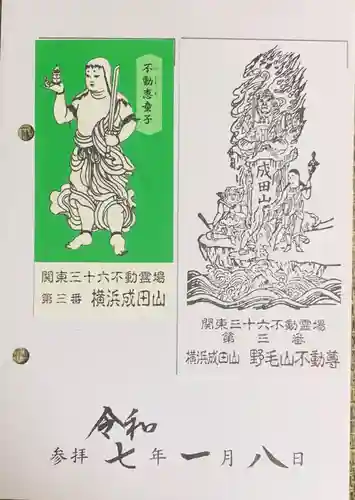 不動恵童子
関東三十六不動霊場
第三番 横浜成田山
成田山
関東三十六不動霊場
第三番
横浜成田山 野毛山不動尊
令和
参拝 七年 一月 八日